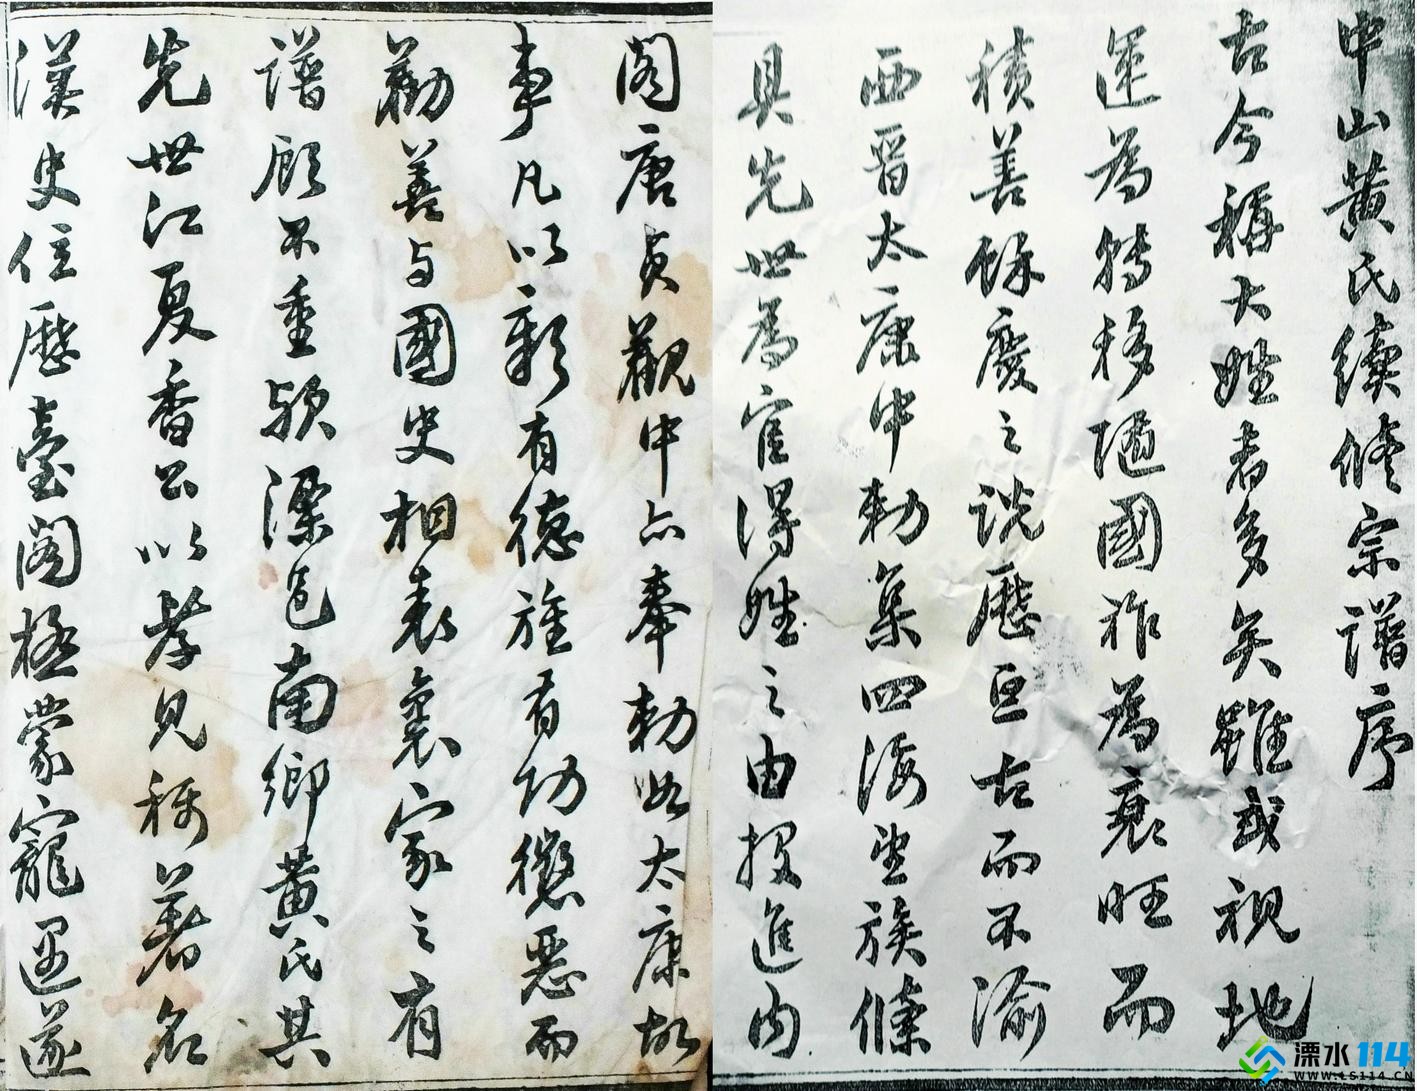 中山黃氏續修宗譜序
古今稱大姓者多矣雖或視地
運為轉移隨國祚為衰旺而
積善餘慶之說歷亘古而不渝
西晉太康中勅集四海望族條
具先世為官得姓之由投進内
閣唐貞觀中亦奉勅如太康故
事凡以彰有德旌有功懲惡而
勸善与國史相表裏家之有
譜顧不重欤溧邑南鄉黃氏其
先世江夏香公以孝見稱著名
漢史位歷臺閣極蒙寵遇遂
溧水114
WWW.LS114.CN